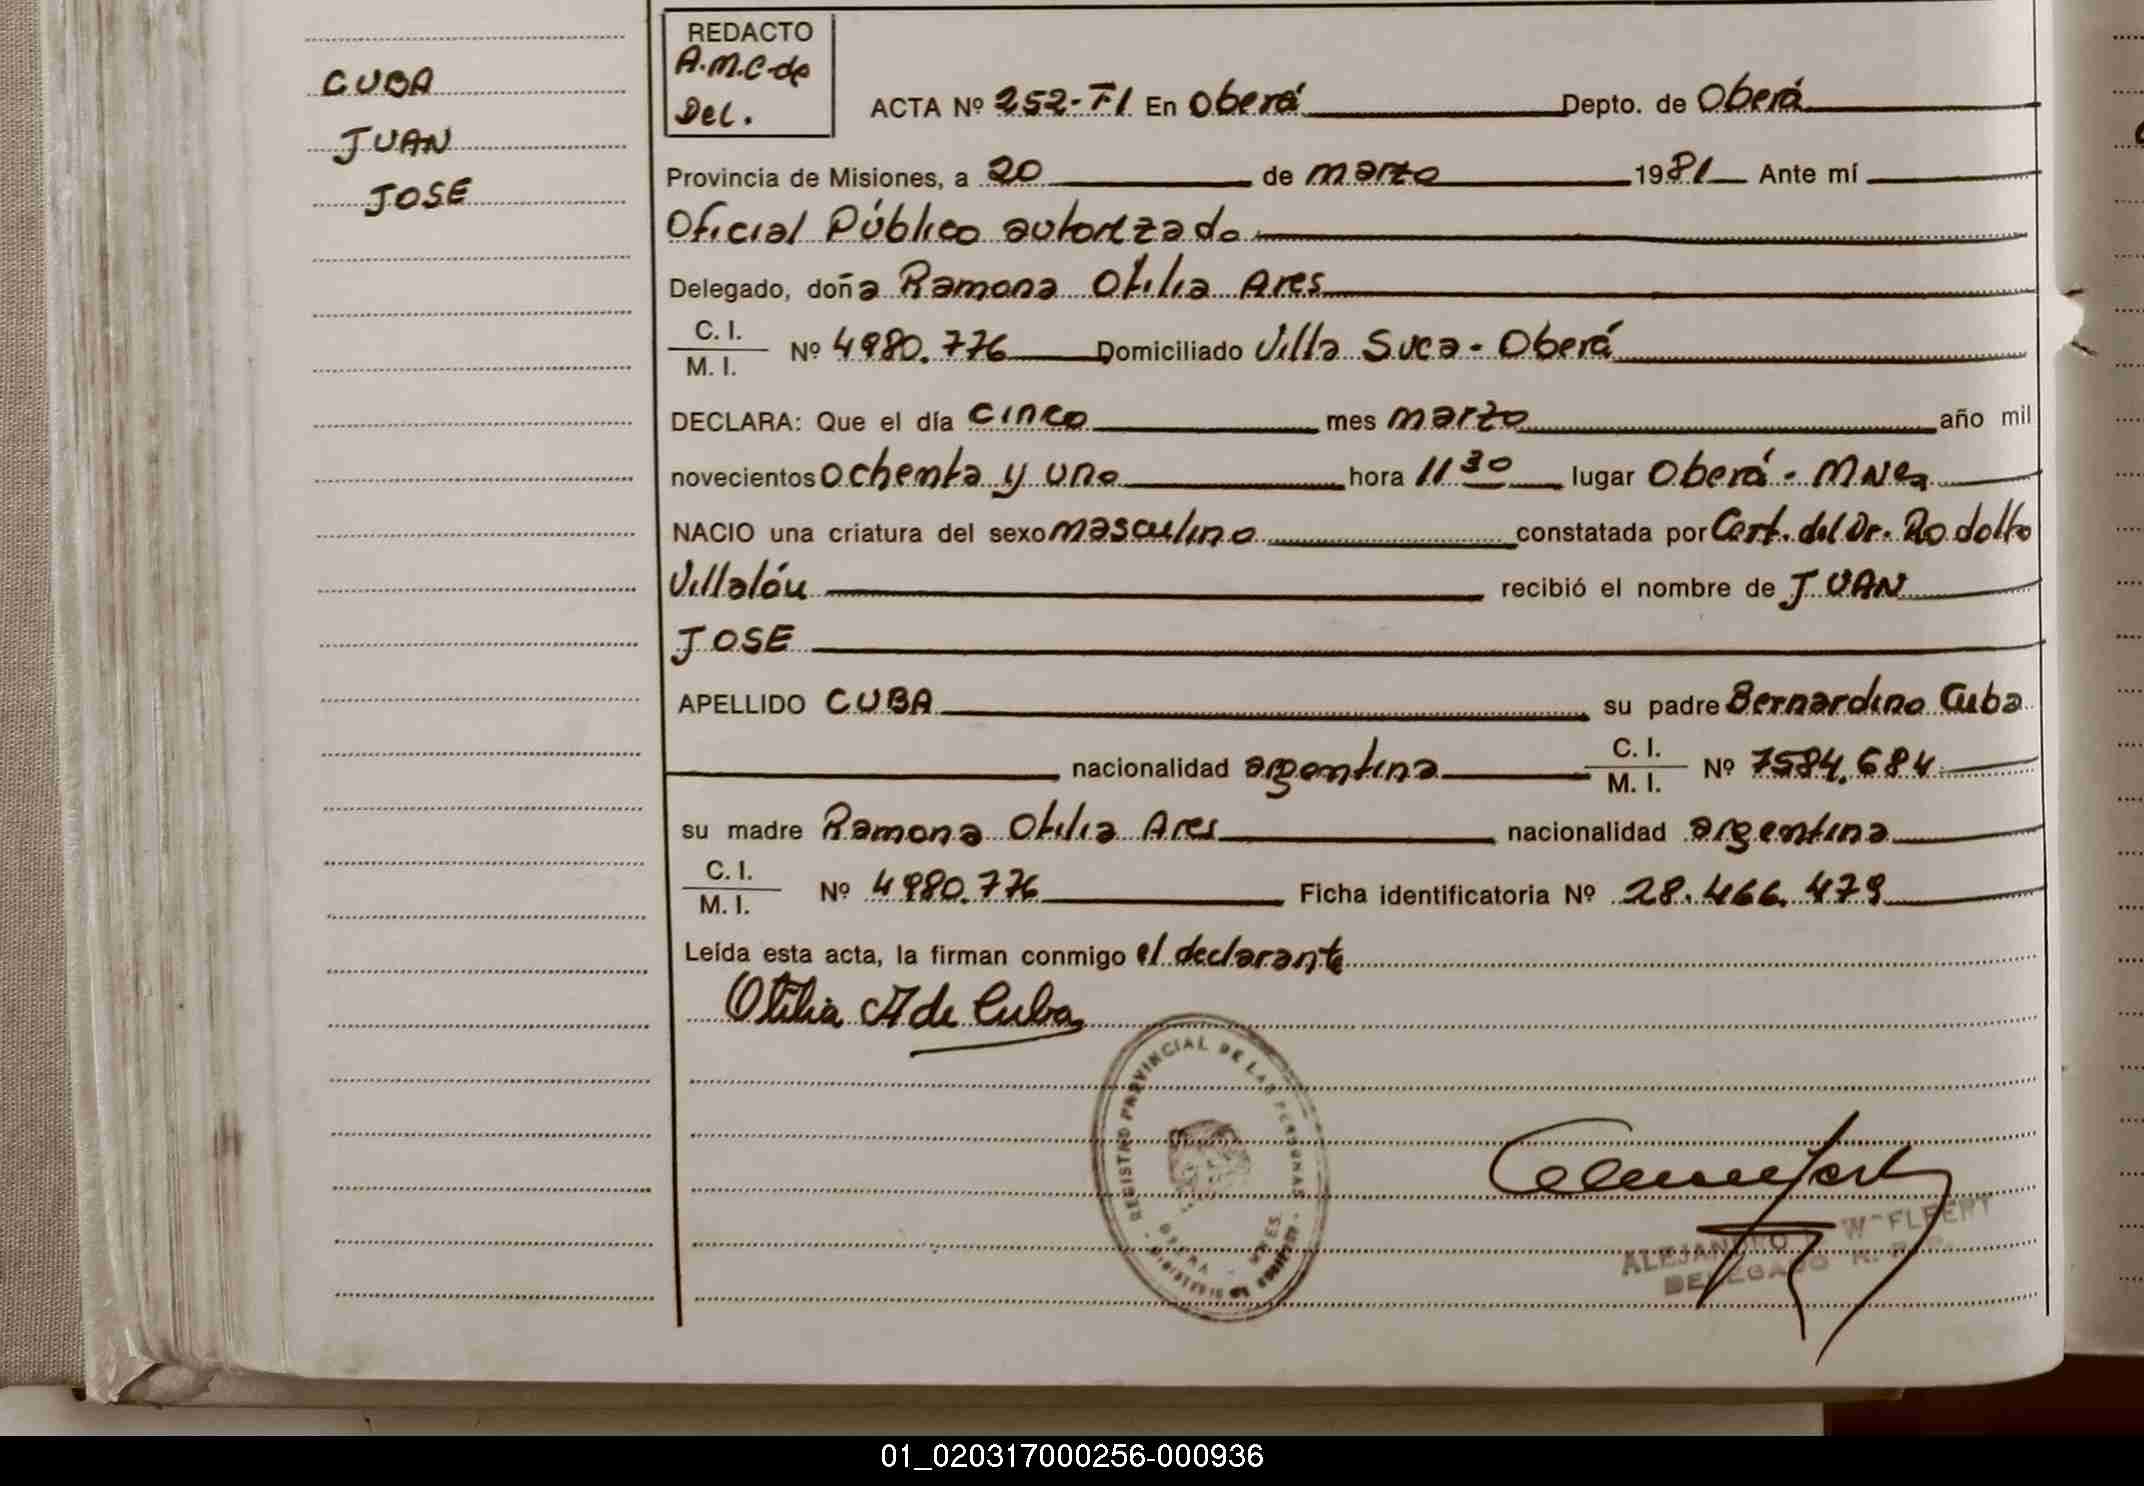 CUBA
JUAN
JOSE
REDACTO
A.M.C. de
Del.
ACTA Nº 252-TI En Oberá Depto. de Oberá
Provincia de Misiones, a 20 de marzo 1981 Ante mí
Oficial Público autorizado
Delegado, doña Ramona Otilia Ares
C. I.
M. I. Nº 4980.776 Domiciliado Villa Suca - Oberá
DECLARA: Que el día cinco mes marzo año mil
novecientos ochenta y uno hora 11 30 lugar Oberá - MNes
NACIO una criatura del sexo masculino constatada por Cert. del Dr. Rodolfo
Villalón recibió el nombre de JUAN
JOSE
APELLIDO CUBA su padre Bernardino Cuba
nacionalidad argentina C. I. M. I. Nº 7584.684
su madre Ramona Otilia Ares nacionalidad argentina
C. I.
M. I. Nº 4980.776 Ficha identificatoria Nº 28.466.479
Leída esta acta, la firman conmigo el declarante
Otilia A de Cuba
REGISTRO PROVINCIAL DE LAS PERSONAS
ALEJANDRO
DELEGADO
01_020317000256-000936